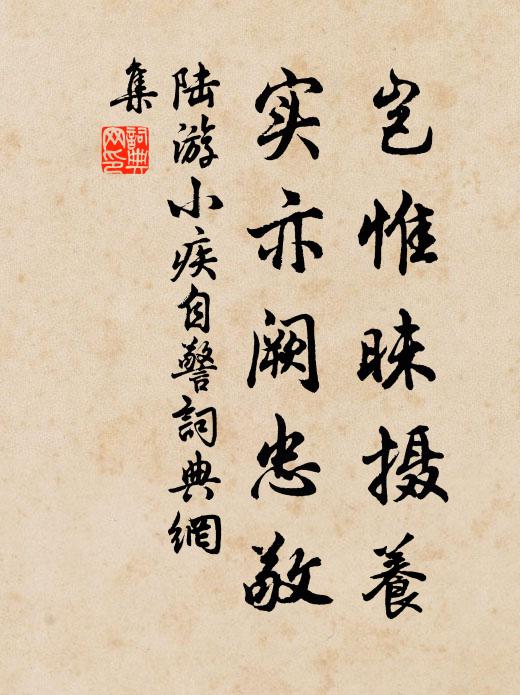 岂惟昧摄养
实亦阙忠敬
陆游小疾自警詞典網
集
詞典
网印